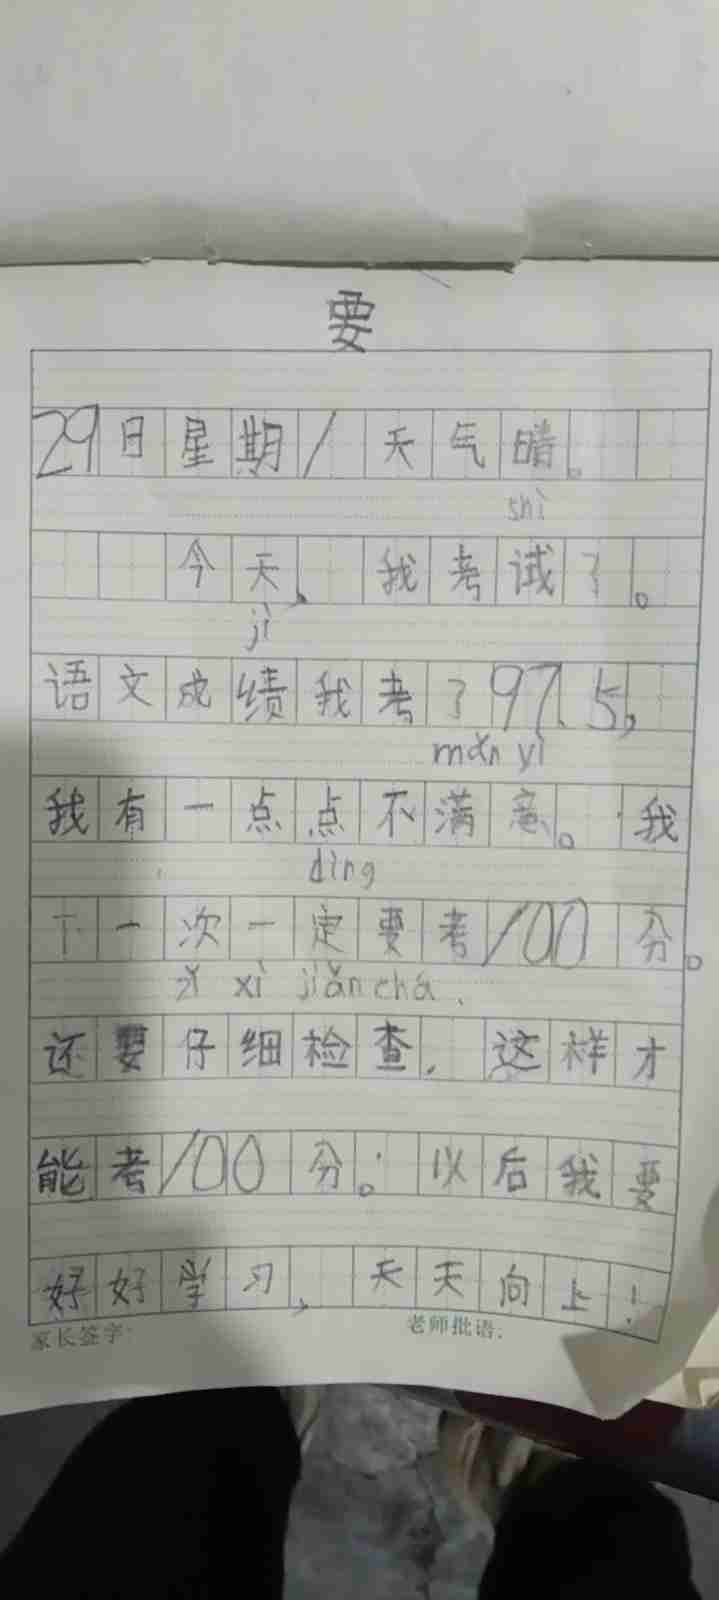 要
29日星期1天气晴。
shì
今天,我考试了。
jì
语文成绩我考了97.5,
mǎn yì
我有一点点不满意。我
dìng
下一次一定要考100分。
zǐ xì jiǎn chá
还要仔细检查,这样才
能考100分。以后我要
好好学习,天天向上!
家长签字: 老师批语: